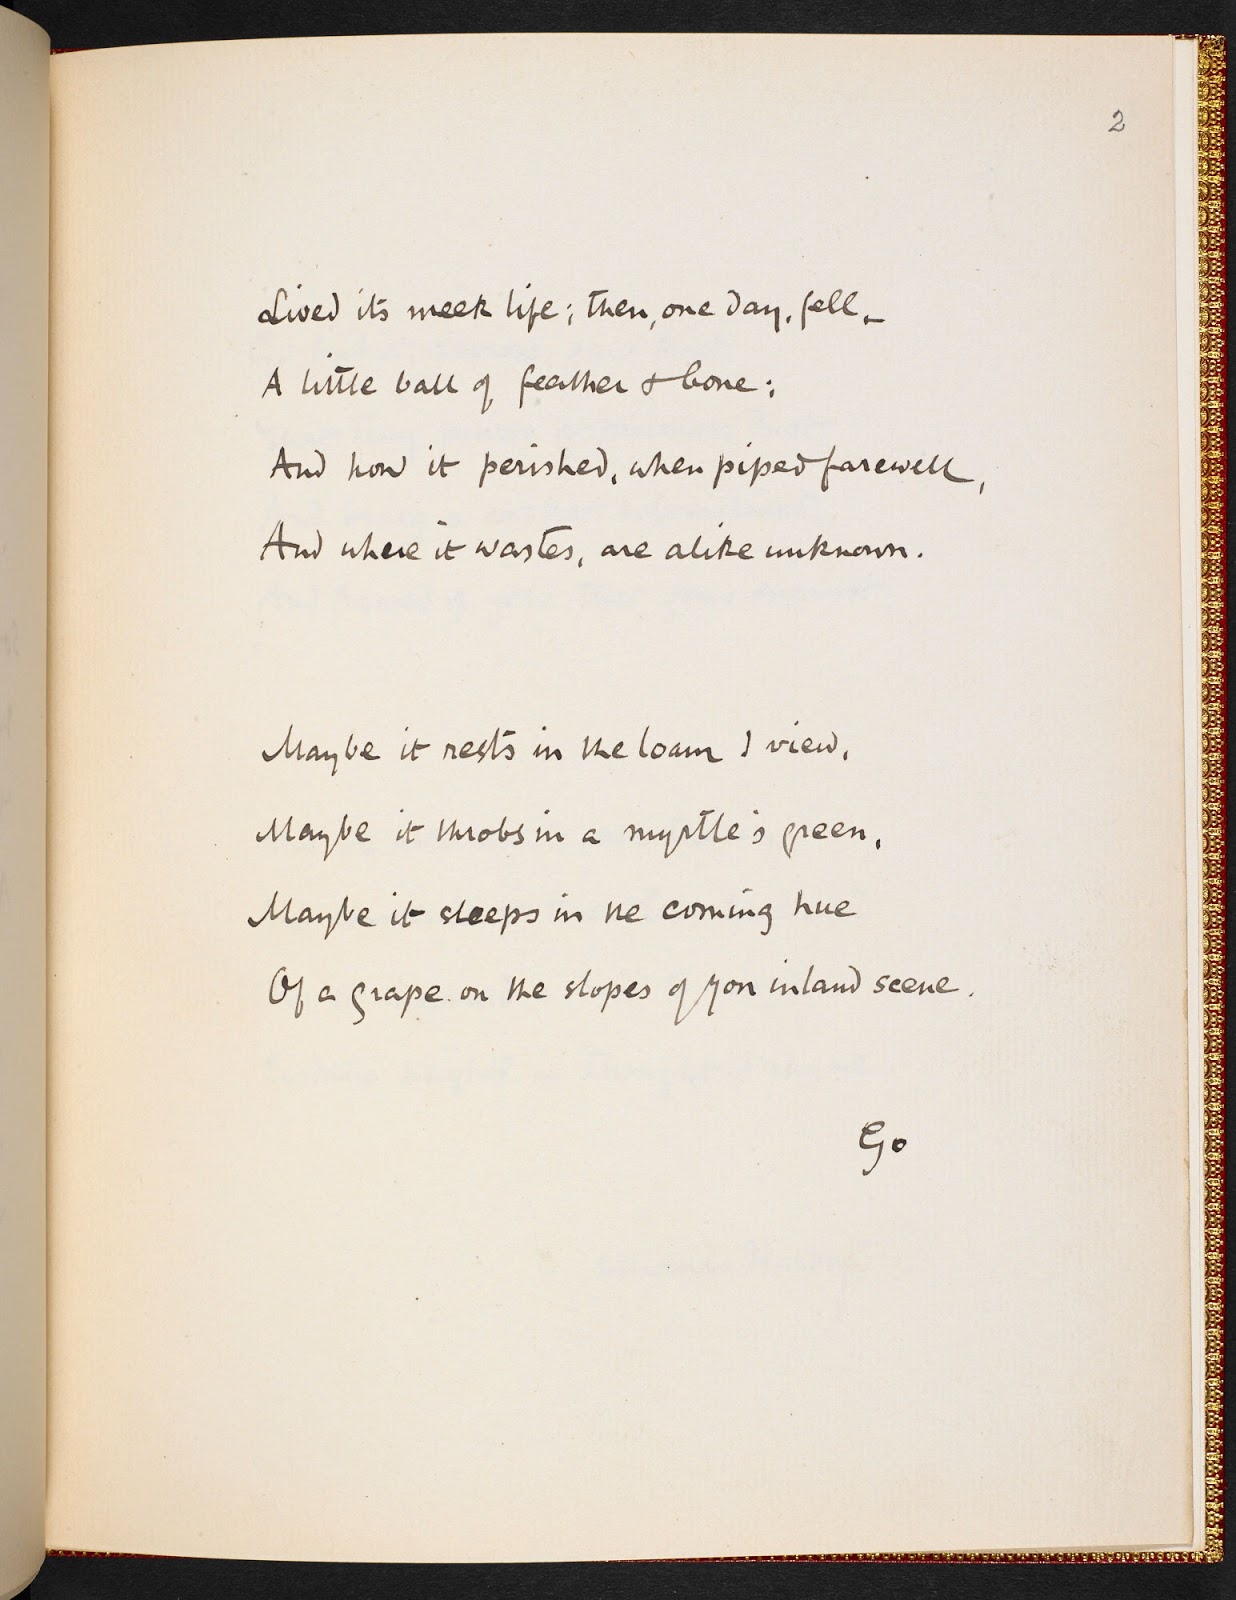 2
Lived its meek life; then, one day, fell,—
A little ball of feather & bone;
And how it perished, when piped farewell,
And where it wastes, are alike unknown.
Maybe it rests in the loam I view,
Maybe it throbs in a myrtle's green,
Maybe it sleeps in the coming hue
Of a grape on the slopes of yon inland scene.
Go